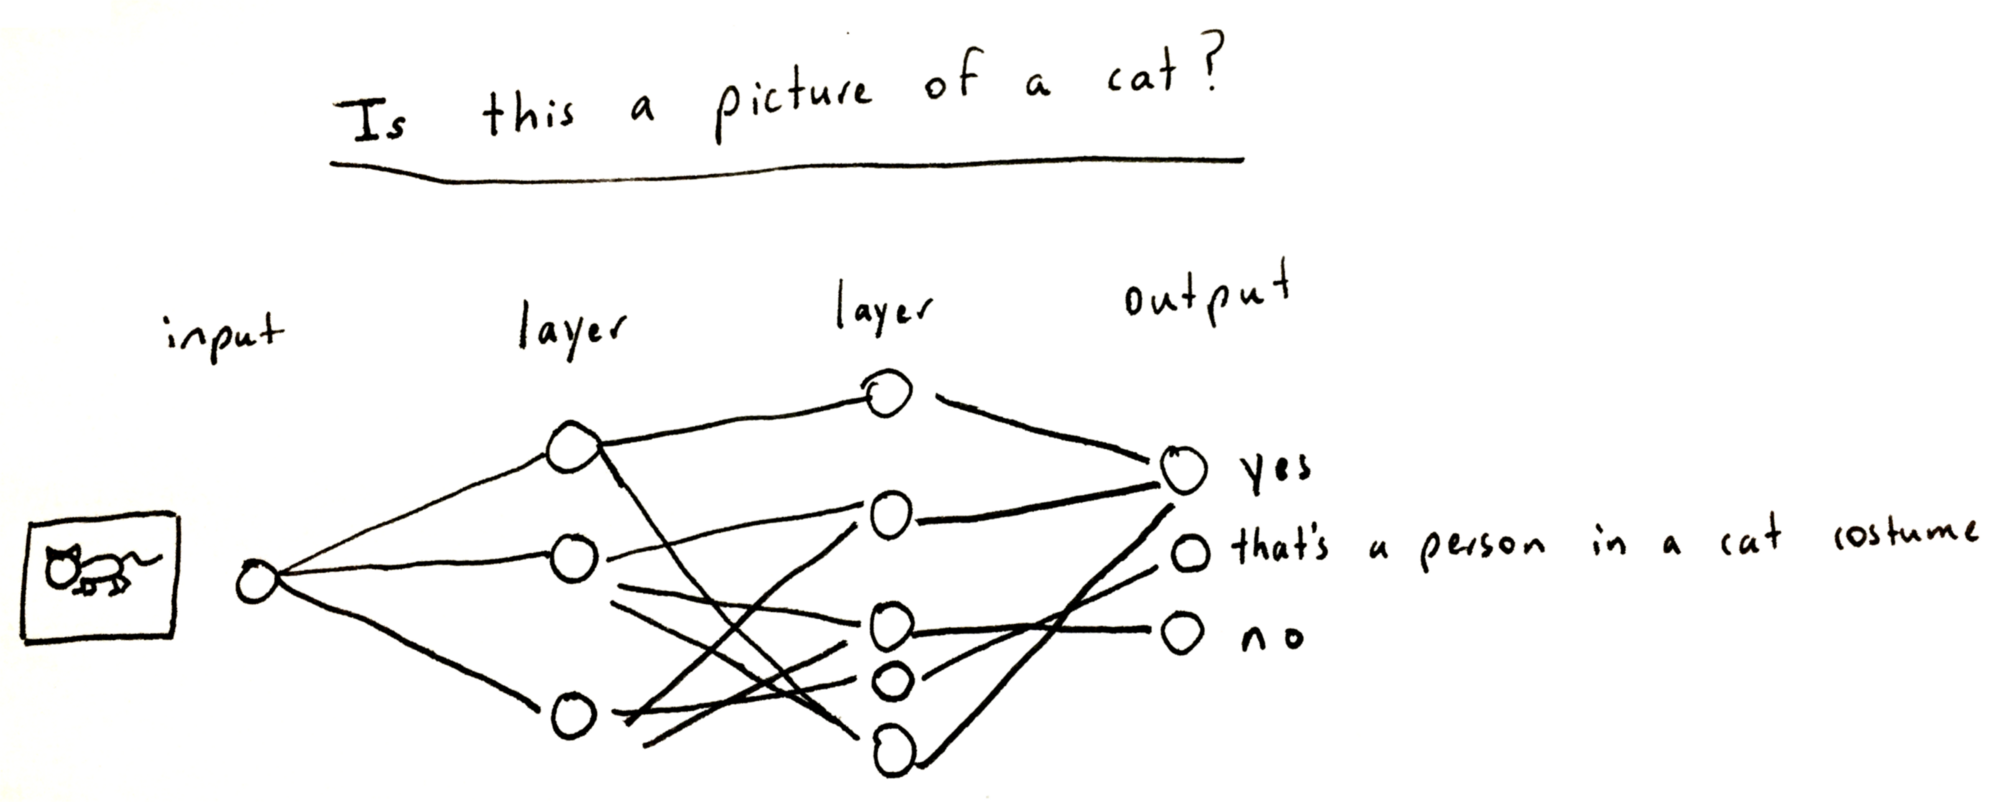 Is this a picture of a cat?
input layer layer output
yes
that's a person in a cat costume
no